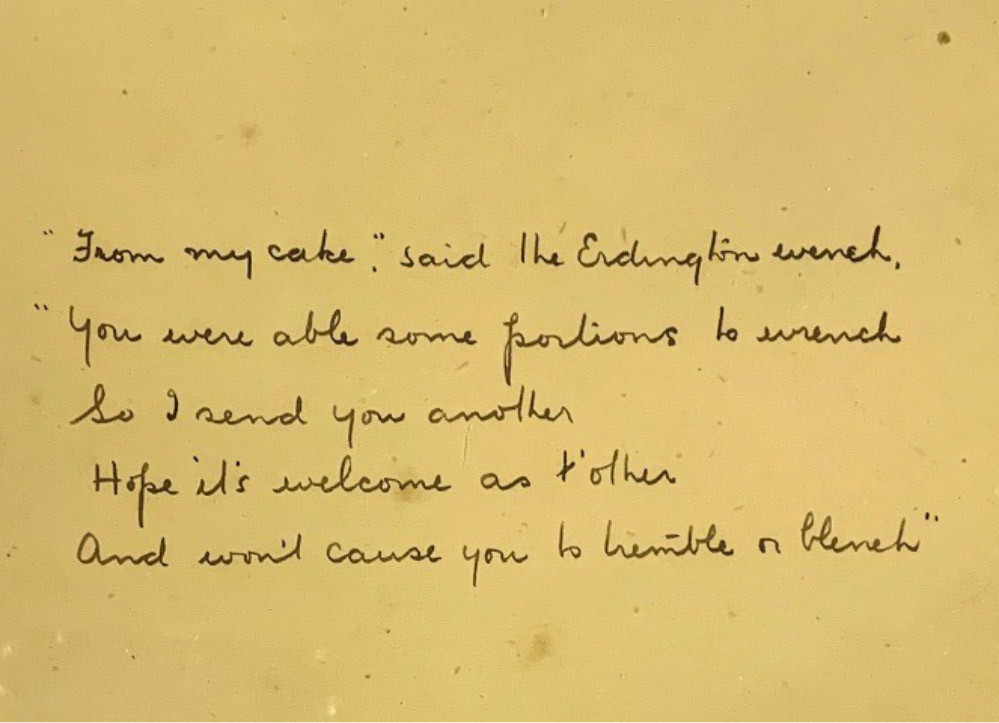 "From my cake," said the Erdington wench,
"You were able some portions to wrench
So I send you another
Hope it's welcome as t'other
And won't cause you to tremble or blench"